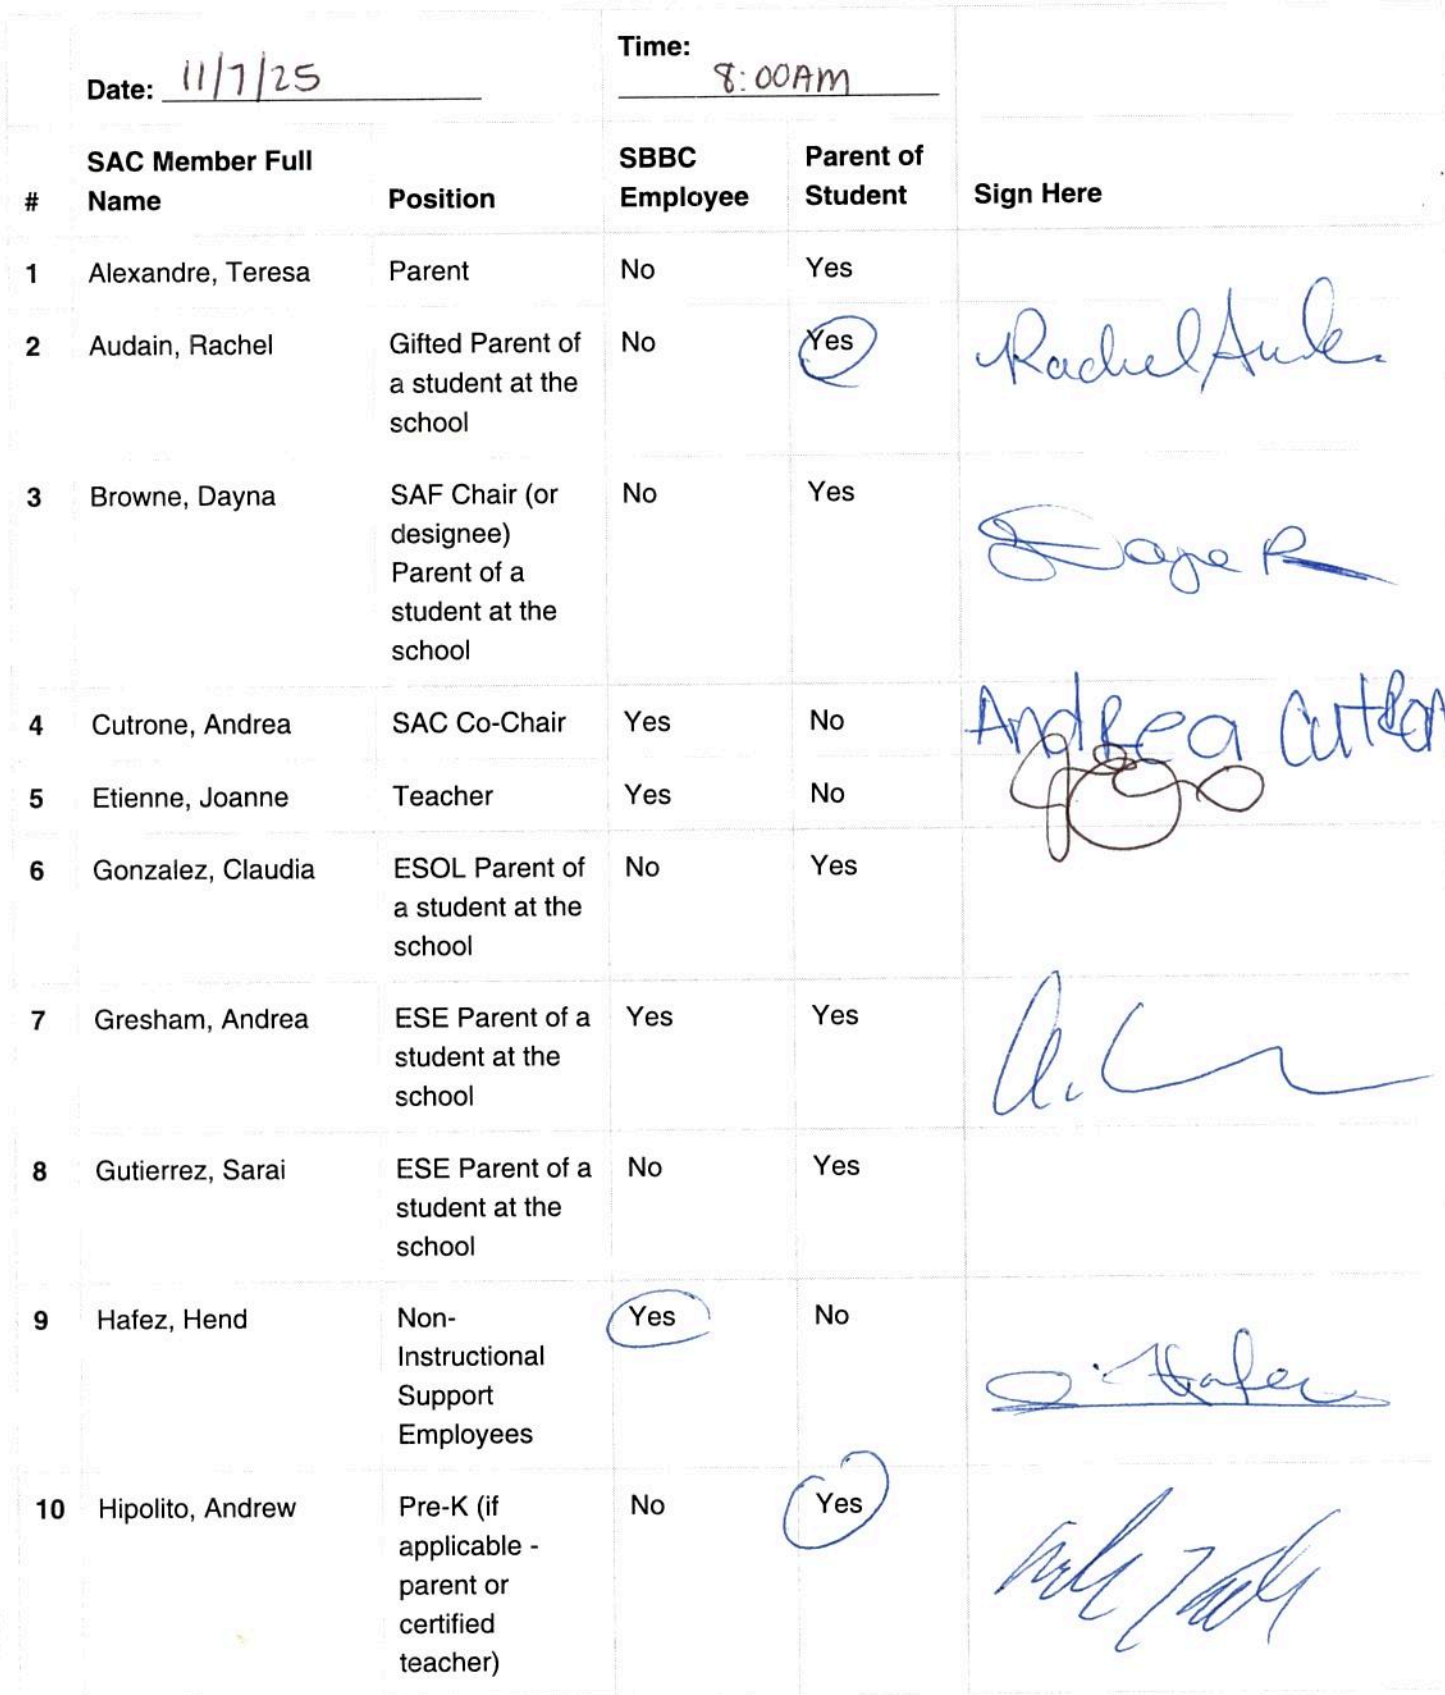 Date: 11/7/25 Time: 8:00AM
# SAC Member Full Name Position SBBC Employee Parent of Student Sign Here
1 Alexandre, Teresa Parent No Yes
2 Audain, Rachel Gifted Parent of No Yes Rachel
a student at the
school
3 Browne, Dayna SAF Chair (or No Yes
designee)
Parent of a
student at the
school
4 Cutrone, Andrea SAC Co-Chair Yes No Andrea
5 Etienne, Joanne Teacher Yes No
6 Gonzalez, Claudia ESOL Parent of No Yes
a student at the
school
7 Gresham, Andrea ESE Parent of a Yes Yes
student at the
school
8 Gutierrez, Sarai ESE Parent of a No Yes
student at the
school
9 Hafez, Hend Non- Yes No
Instructional
Support
Employees
10 Hipolito, Andrew Pre-K (if No Yes
applicable -
parent or
certified
teacher)